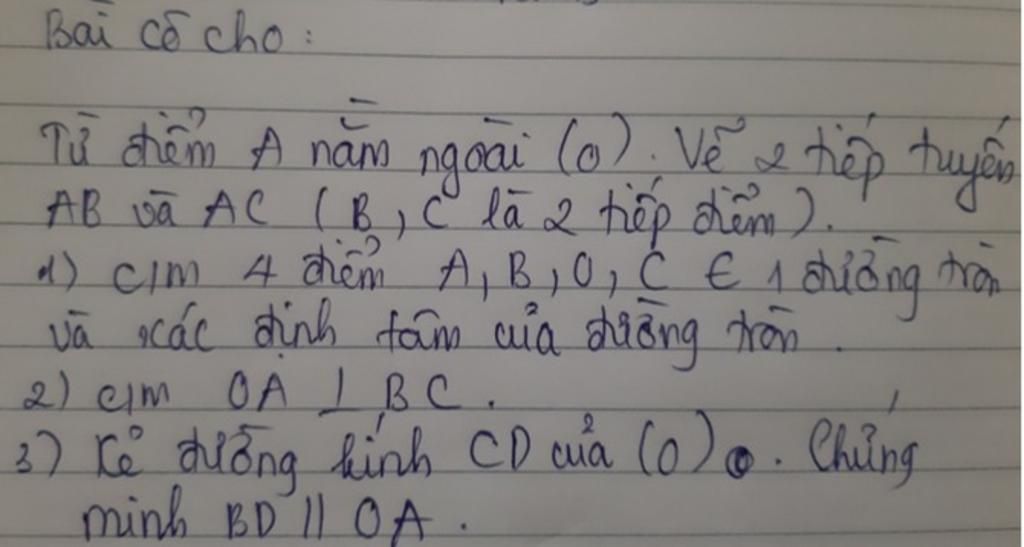 Bài cô cho:
Từ điểm A nằm ngoài (O). Vẽ 2 tiếp tuyến
AB và AC (B, C là 2 tiếp điểm).
1) C/m 4 điểm A, B, O, C ∈ 1 đường tròn
và xác định tâm của đường tròn.
2) C/m OA ⊥ BC.
3) Kẻ đường kính CD của (O). Chứng
minh BD // OA.